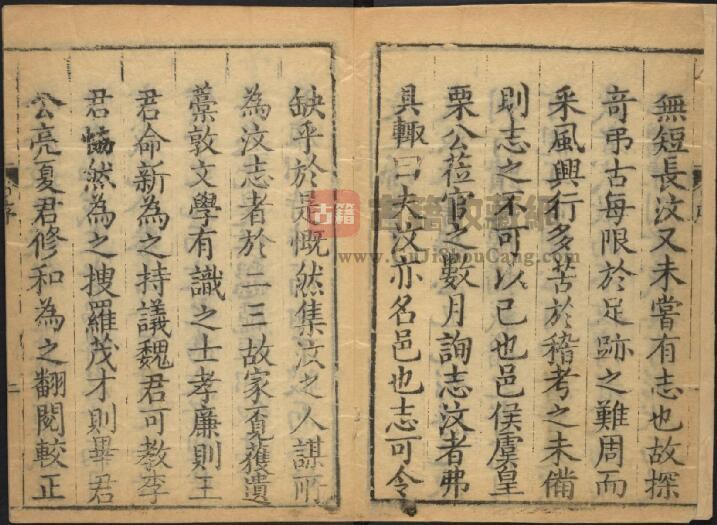 無短長汶又未嘗有志也故探
奇弔古每限於足跡之難周而
采風興行多苦於稽考之未備
則志之不可以已也邑侯虞皇
栗公蒞官之數月詢志汶者弗
具輙曰夫汶亦名邑也志可令
缺乎於是慨然集汶之人謀所
為汶志者於二三故家覔獲遺
藁敦文學有識之士孝廉則王
君命新為之持議魏君可教李
君 然為之搜羅茂才則畢君
公亮夏君修和為之翻閱較正
序
二
古籍
www.GuJiShouCang.com